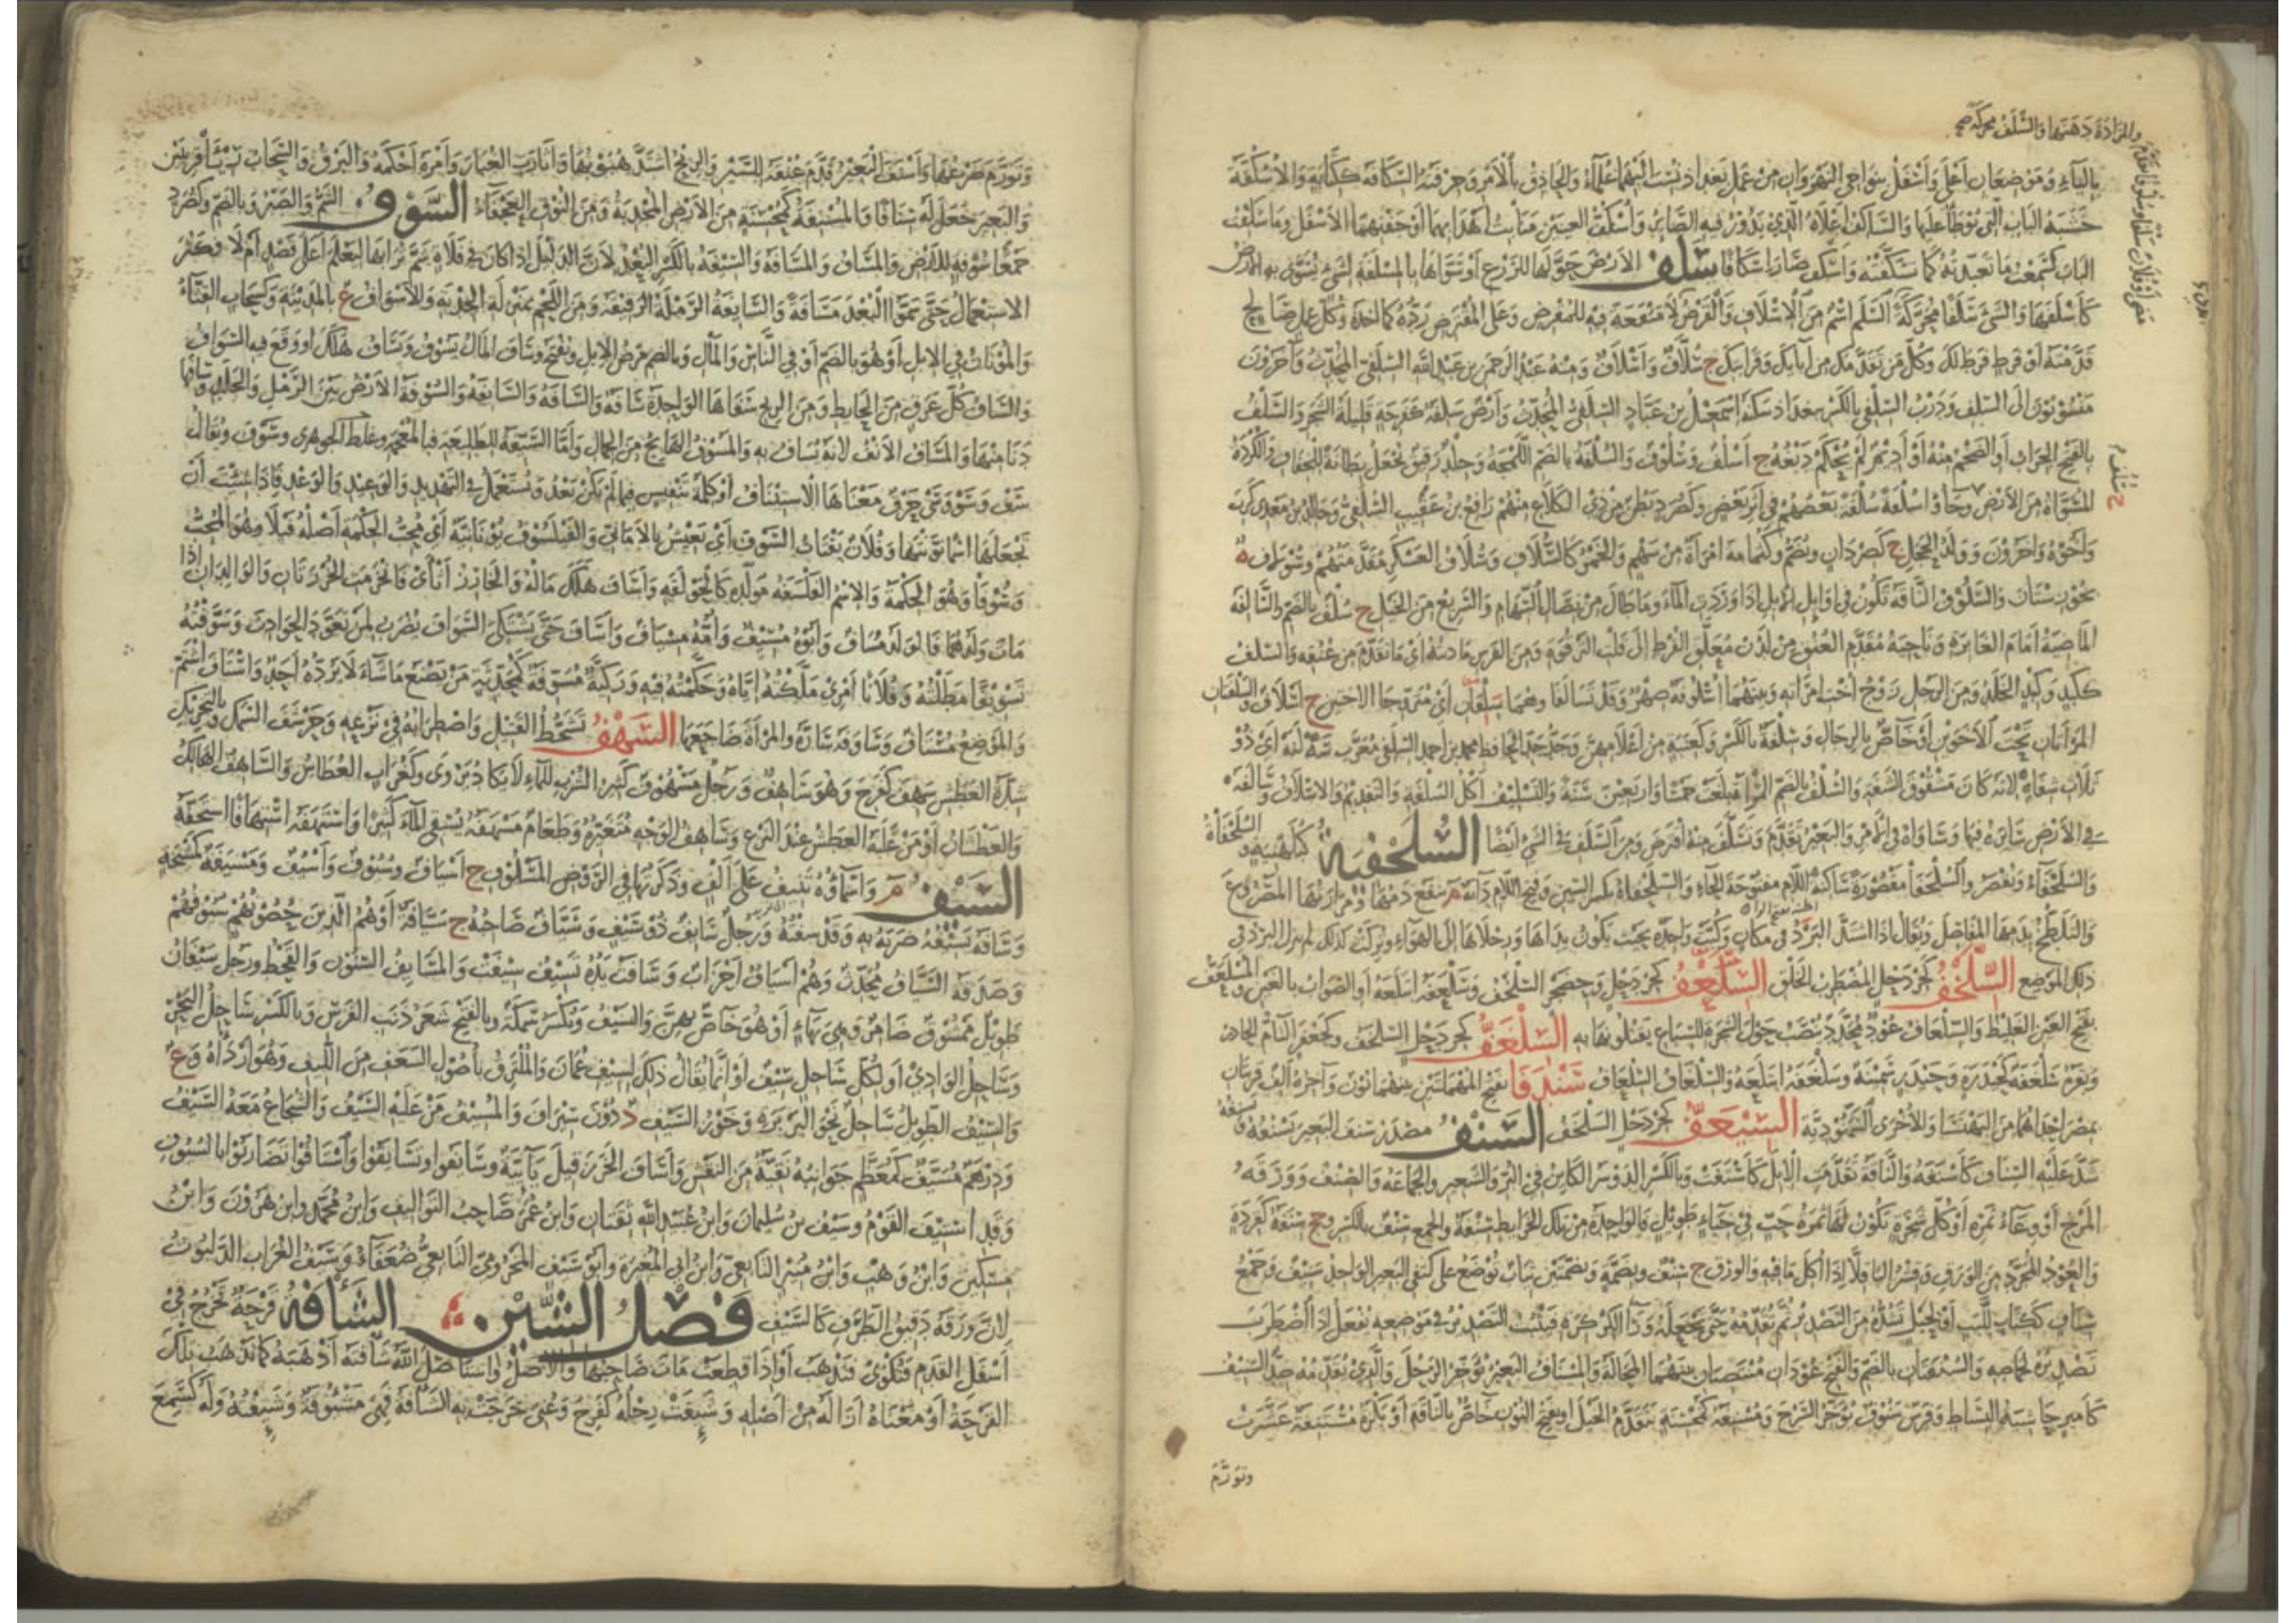 والمزادة دهنها والسلف محركة صح
بالباء وموضعان أعلى وأسفل بنواحي النهروان من عمل بغداد نسب إليهما علماء والحاذق بالأمر وحرفته السكافة ككتابة والأسكفة
خشبة الباب التي يوطأ عليها والساكف أعلاه الذي يدور فيه الصائر وأسكف العينين منابت أهدابهما أو جفنهما الأسفل وما سكفت
الباب كسمعت ما تعتبته كما تسكفته وأسكف صار إسكافا سلف الأرض حولها للزرع أو سواها بالمسلفة لشيء تسوى به الأرض
كأسلفها والشيء سلفا محركة السلم اسم من الإسلاف والقرض لا منفعة فيه للمقرض وعلى المقترض رده كما أخذه وكل عمل صالح
قدمته أو فرط فرط لك وكل من تقدمك من آبائك وقرابتك ج سلاف وأسلاف ومنه عبد الرحمن بن عبد الله السلفي المحدث وآخرون
منسوبون إلى السلف ودرب السلفي بالكسر ببغداد سكنه إسمعيل بن عباد السلفي المحدث وأرض سلفة كفرحة قليلة الشجر والسلف
بالفتح الجراب أو الضخم منه أو أديم لم يحكم دبغه ج أسلف وسلوف والسلفة بالضم اللمجة وجلد رقيق يجعل بطانة للخفاف والكردة
المسواة من الأرض وجاؤا سلفة سلفة بعضهم في إثر بعض وكصرد بطن من ذي الكلاع منهم رافع بن عقيب السلفي وخالد بن معدي كرب
وأخوه وآخرون وولد الحجل ج كصردان ويضم وكثمامة امرأة من سهم والخمر كالسلاف وسلاف العسكر مقدمتهم وسولاف ة
بخوزستان والسلوف الناقة تكون في أوائل الإبل إذا وردت الماء وما طال من نصال السهام والسريع من الخيل ج سلف بالضم والسالفة
الماضية أمام الغابرة وناحية مقدم العنق من لدن معلق القرط إلى قلت الترقوة ومن الفرس هاديته أي ما تقدم من عنقه والسلف
ككبد وكبد الجلد ومن الرجل زوج أخت امرأته وبينهما أسلوفة صهر وقد تسالفا وهما سلفان أي متزوجا الأختين ج أسلاف والسلفتان
المرأتان تحت الأخوين أو خاص بالرجال وسلفة بالكسر وكعنبة من أعلامهن وجد جد الحافظ محمد بن أحمد السلفي معرب سه لبه أي ذو
ثلاث شفاه لأنه كان مشقوق الشفة والسلف بالضم المرأة بلغت خمسا وأربعين سنة والتسليف أكل السلفة والتقديم والإسلاف وسالفه
في الأرض سايره فيها وساواه في الأمر والبعير تقدم وتسلف منه اقترض ومن السلف في الشيء أيضا السلحفية كبلهنية والسلحفاة
والسلحفاء ويقصر والسلحفا مقصورة ساكنة اللام مفتوحة الحاء والسلحفاة بكسر السين وفتح اللام دابة م ينفع دمها ومرارتها المصروع
والتلطخ بدمها المفاصل ويقال إذا اشتد البرد في مكان وكبت واحدة بحيث يكون يداها ورجلاها إلى الهواء وتركت كذلك لم ينزل البرد في
ذلك الموضع السلخف كجردحل المضطرب الخلق السلعف كجردحل وحضجر السلخف وسلعفه ابتلعه أو الصواب بالغين والمسلغف
بفتح الغين الغليظ والسلعاف عود محدد ينصب حول الشجرة للسباع يقتلونها به السلغف كجردحل السلخف وكجعفر التام الحادر
وبقرة سلغفة كحيدرة وحيدر سمينة وسلغفه ابتلعه والسلغاف السلعاف سندفا بفتح المهملتين بينهما نون وآخره ألف قريتان
بمصر إحداهما من البهنسا والأخرى السمنودية السنعف كجردحل السلخف السنف مصدر سنف البعير يسنفه ويسنفه
شد عليه السناف كأسنفه والناقة تقدمت الإبل كأسنفت وبالكسر الدوسر الكائن في البر والشعير والجماعة والصنف وورقة
المرخ أو وعاء ثمره أو كل شجرة تكون لها ثمرة حب في خباء طويل فالواحدة من تلك الخرائط سنفة والجمع سنف بالكسر وجج سنفة كقردة
والعود المجرد من الورق وقشر الباقلا إذا أكل ما فيه والورق ج سنف وبضمة وبضمتين ثياب توضع على كتفي البعير الواحد سنيف وجمع
سناف ككتاب للبب أو لحبل تشده من التصدير ثم تقدمه حتى تجعله وراء الكركرة فيثبت التصدير في موضعه يفعل إذا اضطرب
تصديره لخماصه والسنفتان بالضم والفتح عودان منتصبان بينهما المحالة والمسناف البعير يؤخر الرحل والذي يقدمه ضد السنيف
كأمير حاشية البساط وفرس سنوف يؤخر السرج ومسنفة كمحسنة تتقدم الخيل وبفتح النون خاص بالناقة أو بكرة مسنفة عشرت
وتورم
وتورم ضرعها وأسنف البعير قدم عنقه للسير والريح اشتد هبوبها وأثارت الغبار وأمره أحكمه والبرق والسحاب رئيا قريبين
والبعير جعل له سنافا والمسنفة كمحسنة من الأرض المجدبة ومن النوق العجفاء السوف الشم والصبر وبالضم وكصرد
جمعا سوفة للأرض والمساف والمسافة والسيفة بالكسر البعد لأن الدليل إذا كان في فلاة شم ترابها ليعلم أعلى قصد أم لا فكثر
الاستعمال حتى سموا البعد مسافة والسائفة الرملة الرقيقة ومن اللحم بمنزلة الحذية والأسواف ع بالمدينة وكسحاب القثاء
والموتان في الإبل أو هو بالضم أو في الناس والمال وبالضم مرض الإبل ويفتح وساف المال يسوف ويساف هلك أو وقع فيه السواف
والساف كل عرق من الحائط ومن الريح سفاها الواحدة سافة والسافة والسائفة والسوفة الأرض بين الرمل والجلد وسافها
دنا منها والمساف الأنف لأنه يساف به والمسوف الهائج من الجمال وأما السيقة للطليعة فبالمعجم وغلط الجوهري وسوف ويقال
سف وسو وسي حرف معناها الاستئناف أو كلمة تنفيس فيما لم يكن بعد وتستعمل في التهديد والوعيد والوعد فإذا شئت أن
تجعلها اسما نونتها وفلان يقتات السوف أي يعيش بالأماني والفيلسوف يونانية أي محب الحكمة أصله فيلا وهو المحب
وسوفا وهو الحكمة والاسم الفلسفة مركبة كالحوقلة وأساف هلك ماله والخارز أثأى فانخرمت الخرزتان والوالدان إذا
مات ولدهما فالولد مساف وأبوه مسيف وأمه مسياف وأساف حتى يشتكي السواف يضرب لمن تعود الحوادث وسوفته
تسويفا مطلته وفلانا أمري ملكته إياه وحكمته فيه وركية مسوفة كمحدثة من يصنع ما شاء لا يرده أحد واستاف اشتم
والموضع مستاف وساوفه ساره والمرأة ضاجعها السهف تشحط القتيل واضطرابه في نزعه وحرشف السمك وبالتحريك
شدة العطش سهف كفرح وهو ساهف ورجل مسهوف كثير الشرب للماء لا يكاد يروى وكغراب العطاش والساهف الهالك
والعطشان أو من غلبه العطش عند النزع وساهف الوجه متغيره وطعام مسهفة يسقي الماء كثيرا واستهفه استهافا استخفه
السيف م وأسماؤه تنيف على ألف وذكرتها في الروض المسلوف ج أسياف وسيوف وأسيف ومسيفة كمشيخة
وسافه يسيفه ضربه به وقد سفته ورجل سائف ذو سيف وسياف صاحبه ج سيافة أو هم الذين حصونهم سيوفهم
وصدقة السياف محدث وهم أسياف أحزاب وسافت يده تسيف سئفت والمسايف السنون والقحط ورجل سيفان
طويل ممشوق ضامر وهي بهاء أو هو خاص بهن والسيف ويكسر سمكة وبالفتح شعر ذنب الفرس وبالكسر ساحل البحر
وساحل الوادي أو لكل ساحل سيف أو إنما يقال ذلك لسيف عمان والملتزق بأصول السعف من الليف وهو أردأه وع
والسيف الطويل ساحل نحو البربرة وخور السيف د دون سيراف والمسيف من عليه السيف والشجاع معه السيف
ودرهم مسيف كمعظم جوانبه نقية من النقش وأساف الخرز قيل يائية وسايفوا وتسايفوا واستافوا تضاربوا بالسيوف
وقد استيف القوم وسيف بن سليمان وابن عبيد الله ثقتان وابن عمر صاحب التواليف وابن محمد وابن هرون وابن
مسكين وابن وهب وابن منير التابعي وابن أبي المغيرة وأبو سيف المخزومي التابعي ضعفاء وسيف الغراب الدلبوث
لأن ورقه دقيق الطرف كالسيف فصل الشين الشأفة قرحة تخرج في
أسفل القدم فتكوى فتذهب أو إذا قطعت مات صاحبها والأصل واستأصل الله شأفته أذهبه كما تذهب تلك
القرحة أو معناه أزاله من أصله وشئفت رجله كفرح وعني خرجت به الشأفة فهي مشؤوفة وشئفه وله كسمع